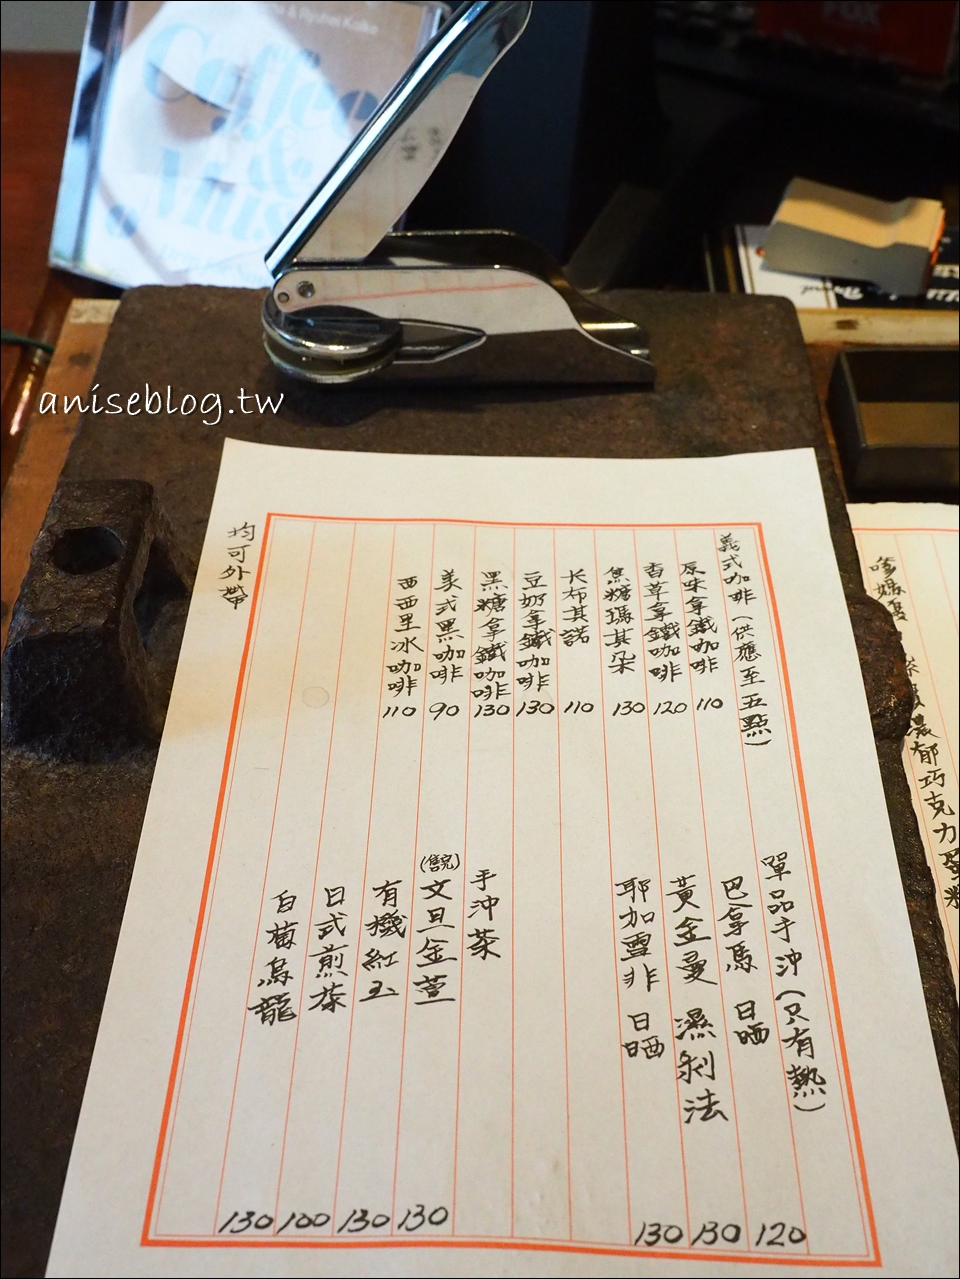 Coffee
&
aniseblog.tw
義式咖啡(供應至五點)
原味拿鐵咖啡 110
香草拿鐵咖啡 120
焦糖瑪其朵 130
卡布其諾 110
豆奶拿鐵咖啡 130
黑糖拿鐵咖啡 130
美式黑咖啡 90
西西里冰咖啡 110
單品手沖(只有熱)
巴拿馬 日晒 120
黃金曼 濕剝法 130
耶加雪非 日晒 130
手沖茶
(售完)文旦金萱 130
有機紅玉 130
日式煎茶 100
白菊烏龍 130
均可外帶
濃郁巧克力蛋糕